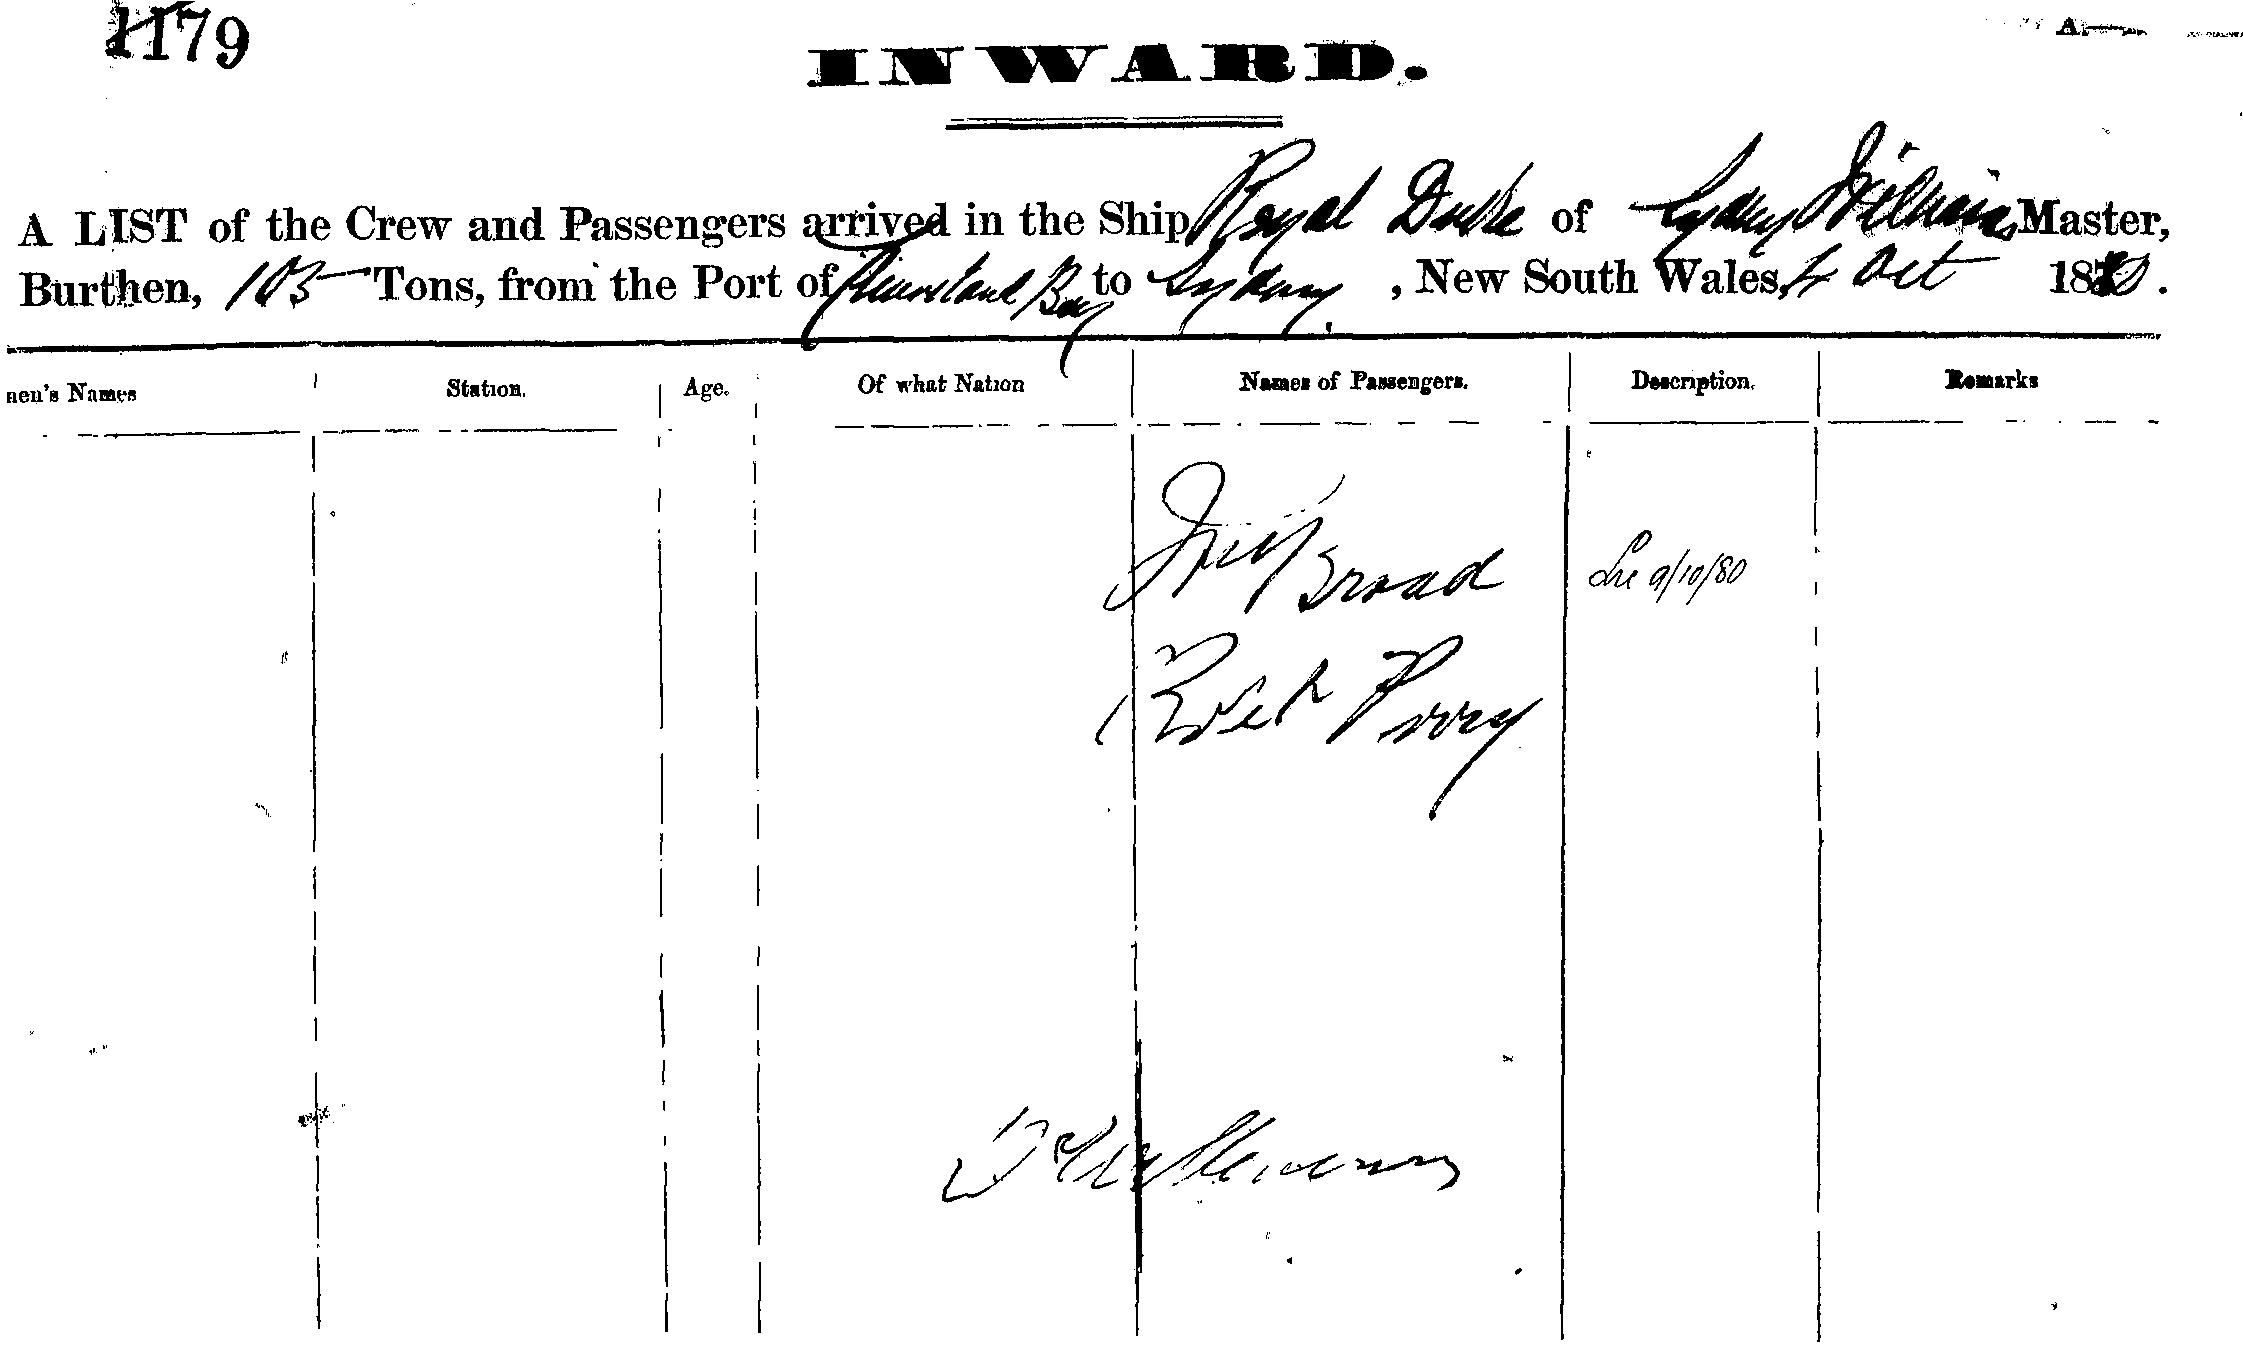 1179
INWARD.
A LIST of the Crew and Passengers arrived in the Ship Royal Duke of Sydney Williams Master,
Burthen, 103 Tons, from the Port of Bay to Sydney, New South Wales, 4 Oct 1880.
nen's Names Station. Age. Of what Nation Names of Passengers. Description. Remarks
Broad 9/10/80
Robt Perry